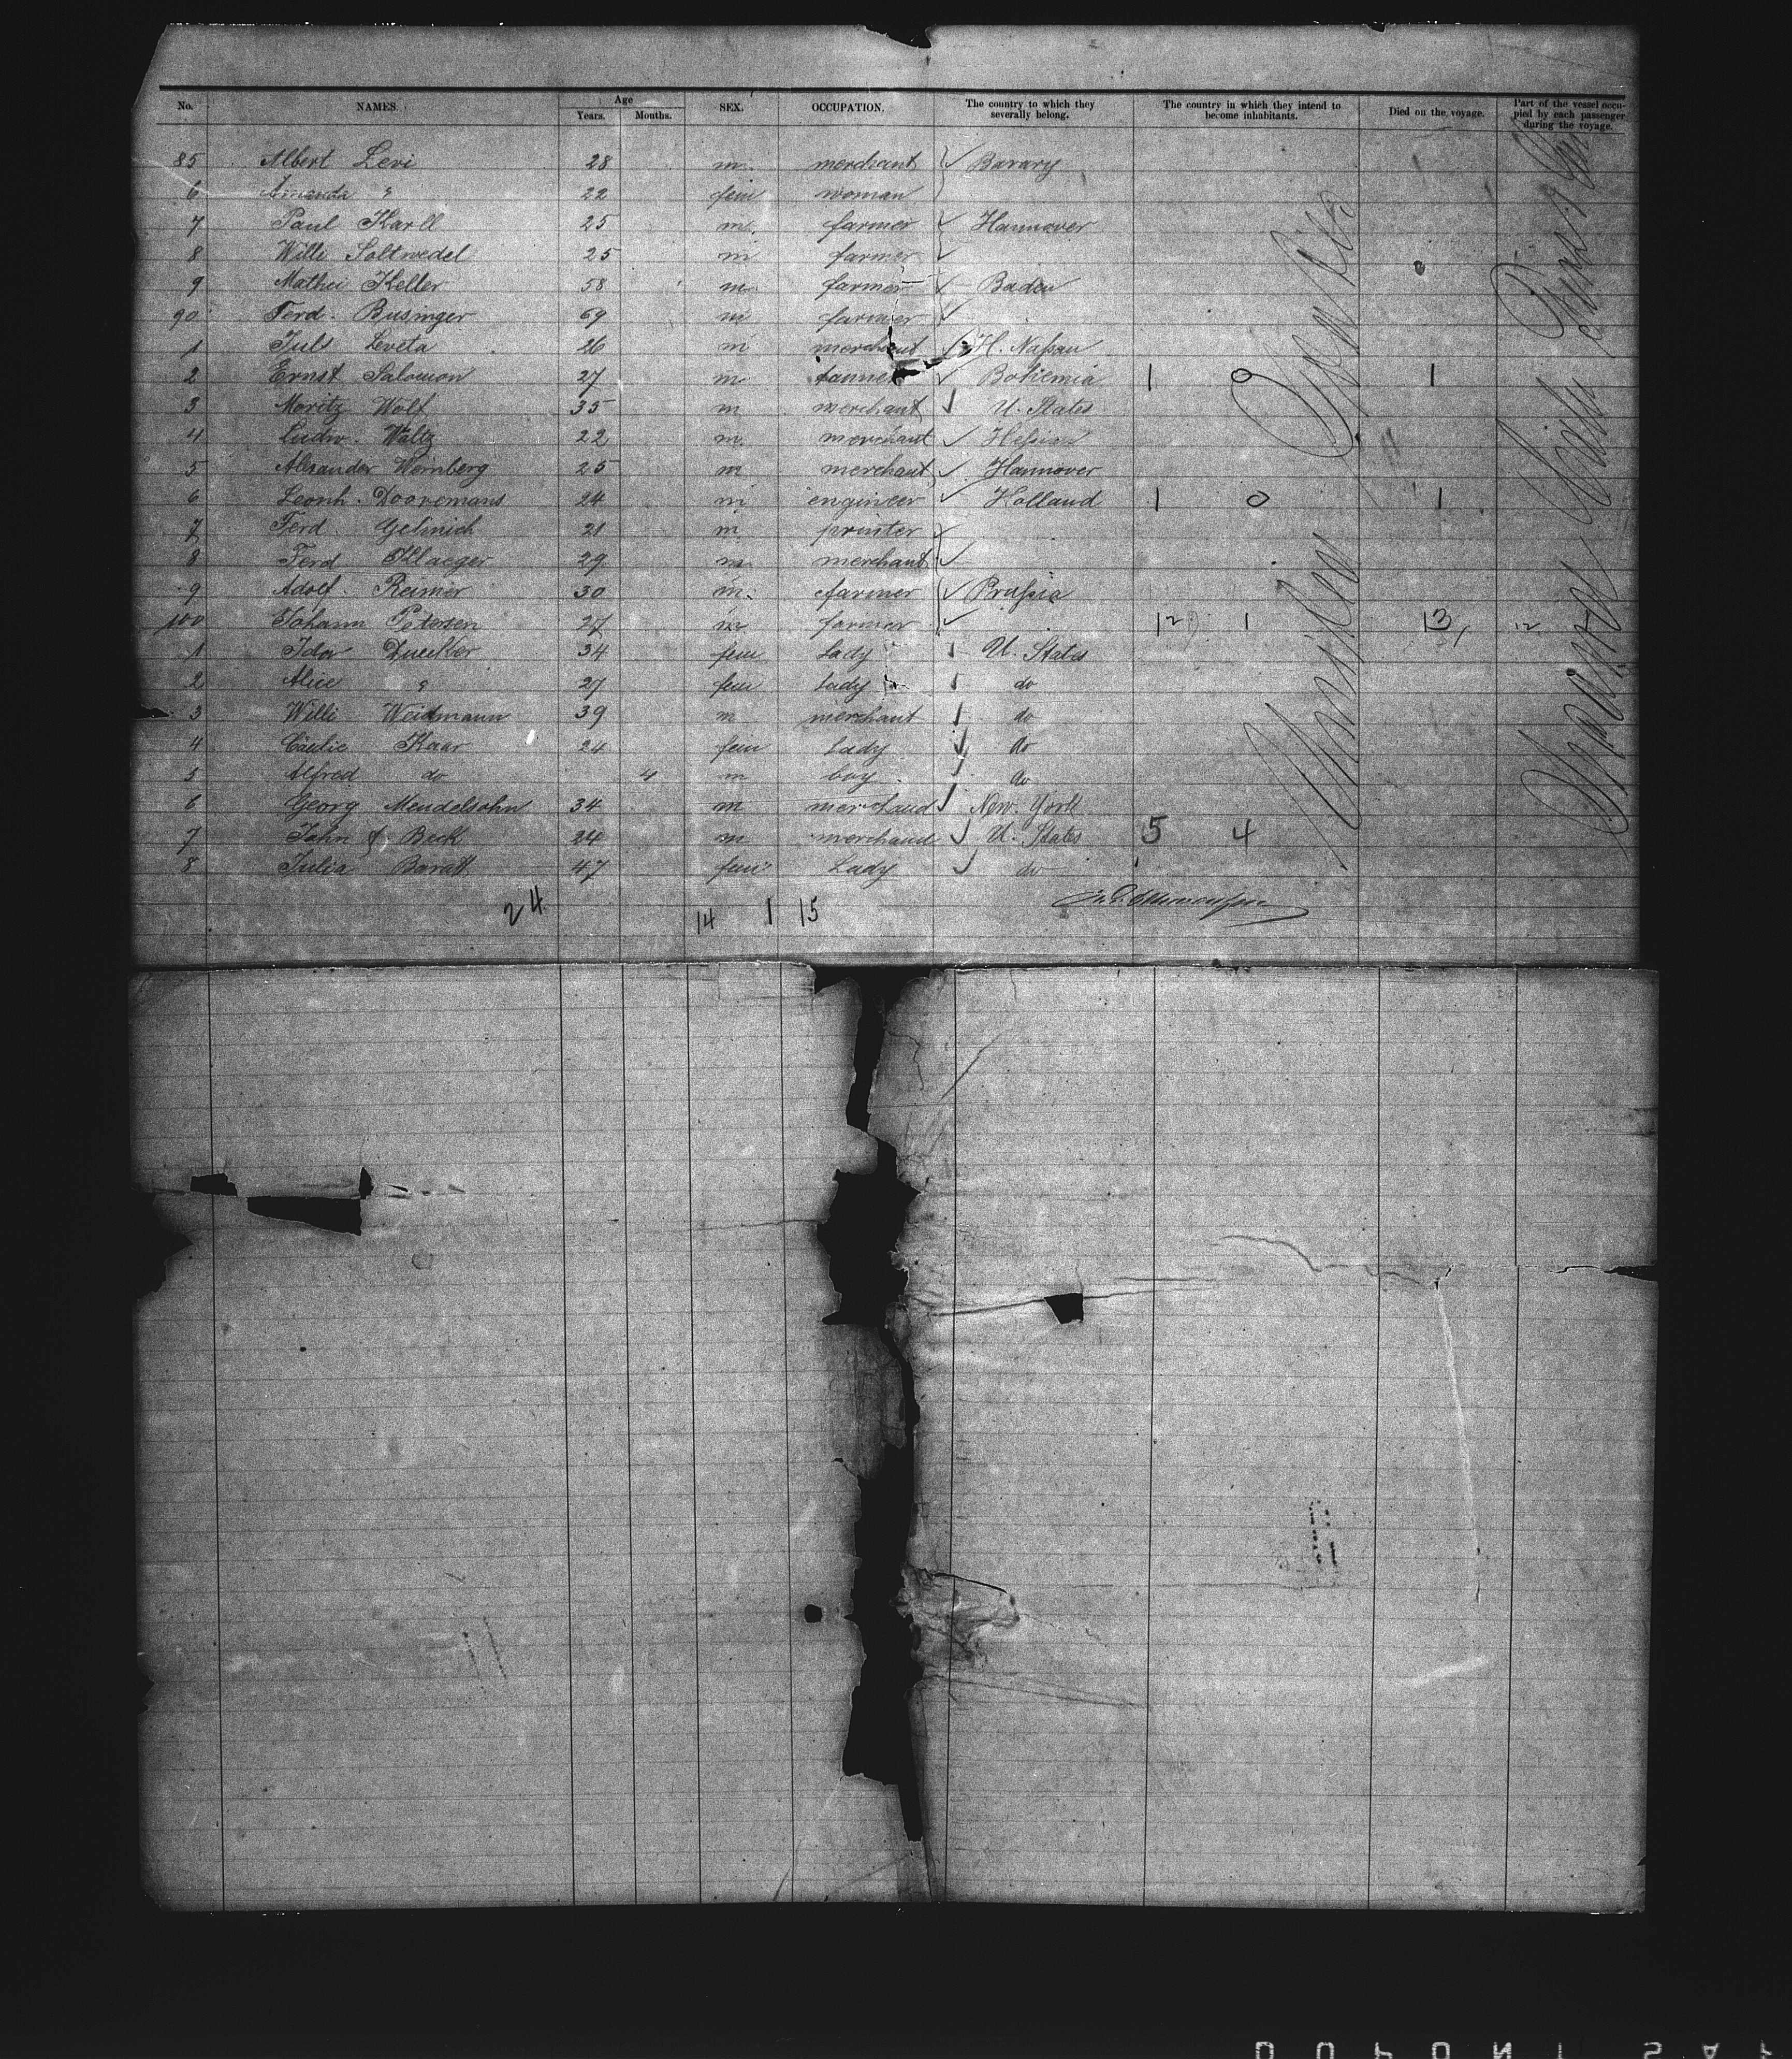 No. NAMES. Age Years. Months. SEX. OCCUPATION. The country to which they severally belong. The country in which they intend to become inhabitants. Died on the voyage. Part of the vessel occupied by each passenger during the voyage.
85 Albert Levi 28 m. merchant Bavary
6 Amanda " 22 fem woman
7 Paul Karll 25 m. farmer Hannover
8 Willi Soltwedel 25 m farmer
9 Mathei Keller 58 m. farmer Baden
90 Ferd. Businger 69 m farmer
1 Juls Leveta 26 m merchant H. Naßau
2 Ernst Salomon 27 m tanner Bohemia 1 0 1
3 Moritz Wolf 35 m merchant U. States
4 Ludw. Waltz 22 m. merchant
5 Alexander Wernberg 25 m merchant Hannover
6 Leonh. Dooremans 24 m engineer Holland 1 0 1
7 Ferd. Gelinich 21 m. printer
8 Ferd 29 m merchant
9 Adolf. Reimer 30 m. farmer Prußia
100 Johann Petersen 27 m farmer 12 1 13 12
1 Ida Duecker 34 fem Lady U. States
2 Alice " 27 fem Lady do
3 Willi Weidmann 39 m merchant do
4 Cäcilie Kaar 24 fem Lady do
5 Alfred do 4 m boy do
6 Georg Mendelsohn 34 m merchand New. York
7 John Beck 24 m merchand U. States 5 4
8 Julia Baratt 47 fem Lady do
24 14 1 15